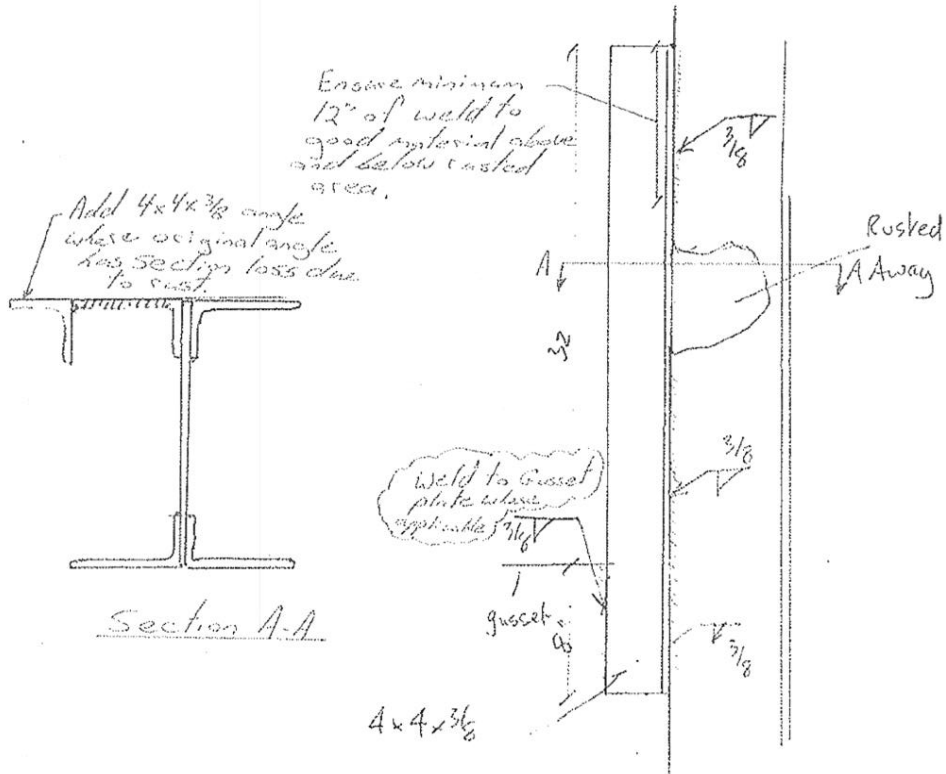 Ensure minimum
12" of weld to
good material above
and below rusted
area.
3/8
Add 4x4x3/8 angle
where original angle
has section loss due
to rust.
Rusted
Away
A
A
32
3/8
Weld to Gusset
plate where
applicable
3/16
gusset
8"
3/8
Section A-A
4x4x3/8